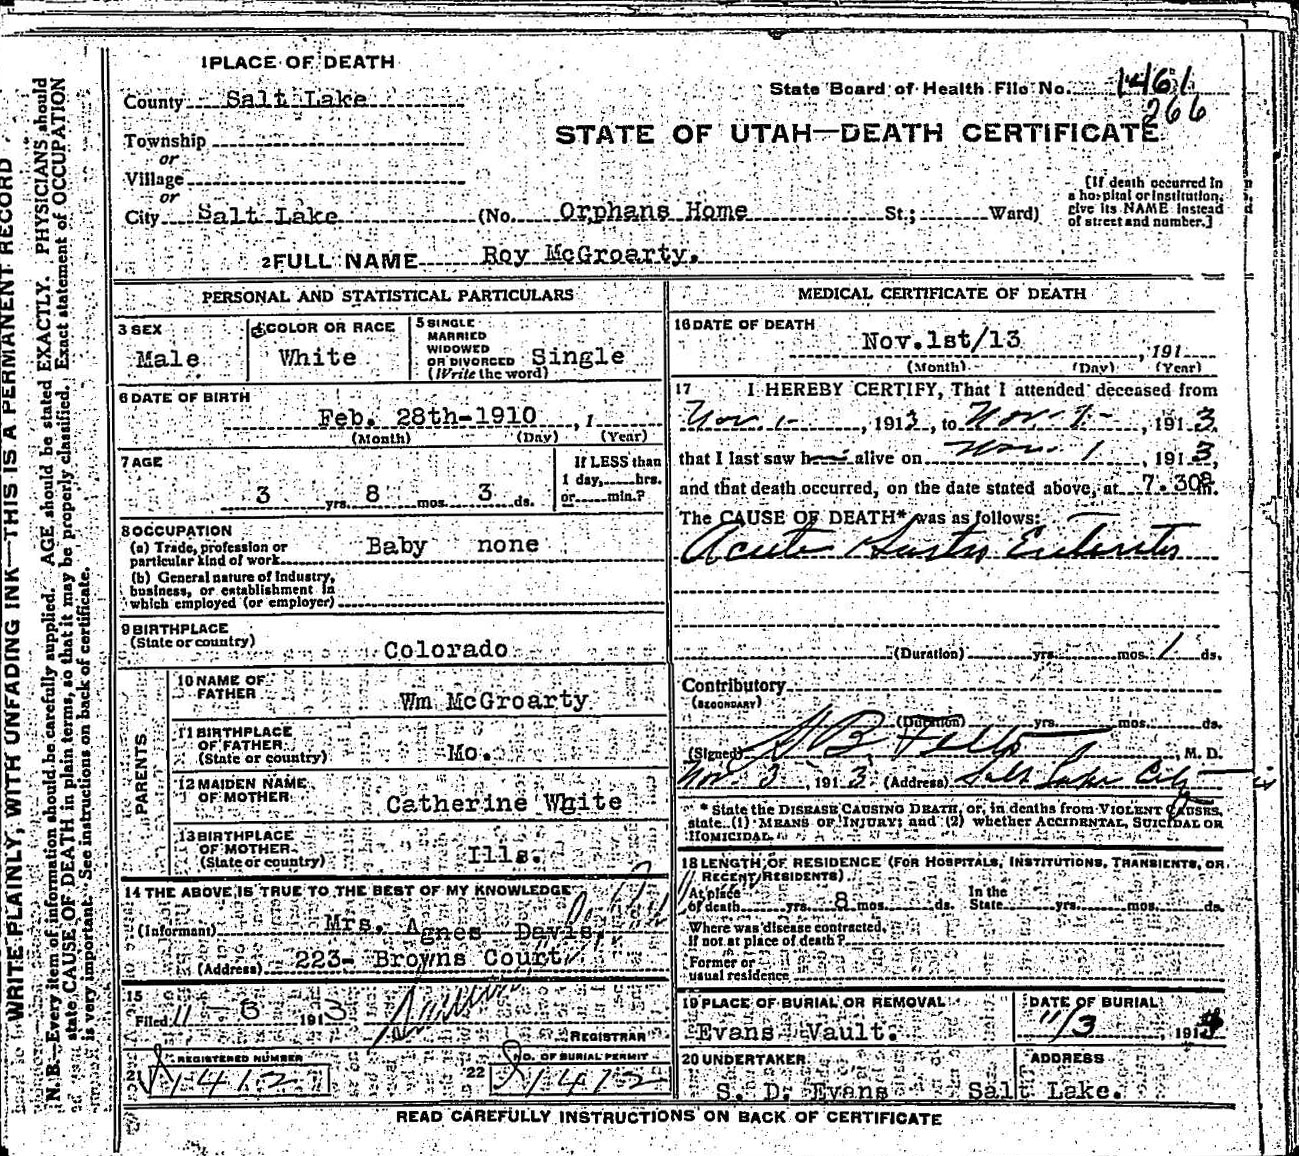 1 PLACE OF DEATH
County Salt Lake
State Board of Health File No. 1461
266
STATE OF UTAH—DEATH CERTIFICATE
Township
or
Village
or
City Salt Lake (No. Orphans Home St.; Ward)
[If death occurred in
a hospital or institution,
give its NAME instead
of street and number.]
2 FULL NAME Roy McGroarty.
PERSONAL AND STATISTICAL PARTICULARS
3 SEX
Male
4 COLOR OR RACE
White
5 SINGLE
MARRIED
WIDOWED
OR DIVORCED Single
(Write the word)
6 DATE OF BIRTH
Feb. 28th-1910, 1
(Month) (Day) (Year)
7 AGE
3 yrs. 8 mos. 3 ds.
If LESS than
1 day, hrs.
or min.?
8 OCCUPATION
(a) Trade, profession or
particular kind of work Baby none
(b) General nature of Industry,
business, or establishment in
which employed (or employer)
9 BIRTHPLACE
(State or country)
Colorado
PARENTS
10 NAME OF
FATHER
Wm McGroarty
11 BIRTHPLACE
OF FATHER
(State or country)
Mo.
12 MAIDEN NAME
OF MOTHER
Catherine White
13 BIRTHPLACE
OF MOTHER
(State or country)
Ills.
14 THE ABOVE IS TRUE TO THE BEST OF MY KNOWLEDGE
(Informant) Mrs. Agnes Davis,
(Address) 223- Browns Court
15
Filed 11 - 6 1913
REGISTRAR
REGISTERED NUMBER
1412
22
NO. OF BURIAL PERMIT
1412
MEDICAL CERTIFICATE OF DEATH
16 DATE OF DEATH
Nov.1st/13, 191
(Month) (Day) (Year)
17 I HEREBY CERTIFY, That I attended deceased from
Nov. 1-, 1913, to Nov. 1-, 1913.
that I last saw h alive on Nov. 1, 1913,
and that death occurred, on the date stated above, at 7.30 m.
The CAUSE OF DEATH* was as follows:
Acute Gastro Enteritis
(Duration) yrs. mos. 1 ds.
Contributory
(SECONDARY)
(Duration) yrs. mos. ds.
(Signed), M. D.
Nov 3, 1913, (Address) Salt Lake City
* State the DISEASE CAUSING DEATH, or, in deaths from VIOLENT CAUSES,
state (1) MEANS OF INJURY; and (2) whether ACCIDENTAL, SUICIDAL OR
HOMICIDAL.
18 LENGTH OF RESIDENCE (FOR HOSPITALS, INSTITUTIONS, TRANSIENTS, OR
RECENT RESIDENTS)
At place
of death yrs. 8 mos. ds.
In the
State yrs. mos. ds.
Where was disease contracted,
If not at place of death?
Former or
usual residence
19 PLACE OF BURIAL OR REMOVAL
Evans Vault.
DATE OF BURIAL
11/3 191
20 UNDERTAKER
S. D. Evans
ADDRESS
Salt Lake.
READ CAREFULLY INSTRUCTIONS ON BACK OF CERTIFICATE
WRITE PLAINLY, WITH UNFADING INK—THIS IS A PERMANENT RECORD
N. B.—Every item of information should be carefully supplied. AGE should be stated EXACTLY. PHYSICIANS should
state CAUSE OF DEATH in plain terms, so that it may be properly classified. Exact statement of OCCUPATION
is very important. See instructions on back of certificate.